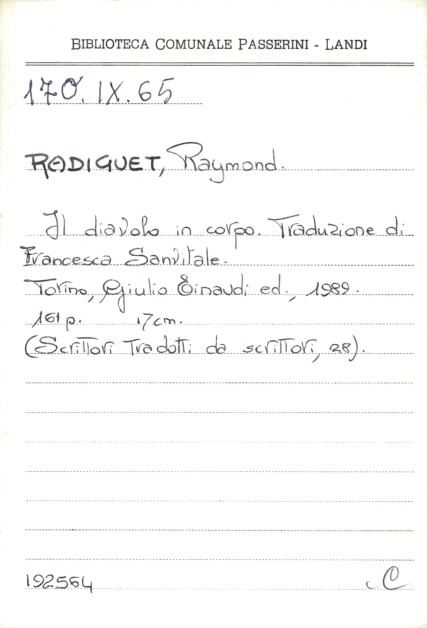 BIBLIOTECA COMUNALE PASSERINI - LANDI
170.IX.65
RADIGUET, Raymond.
Il diavolo in corpo. Traduzione di
Francesca Sanvitale.
Torino, Giulio Einaudi ed., 1989.
161 p. 17 cm.
(Scrittori tradotti da scrittori, 28).
192564
C